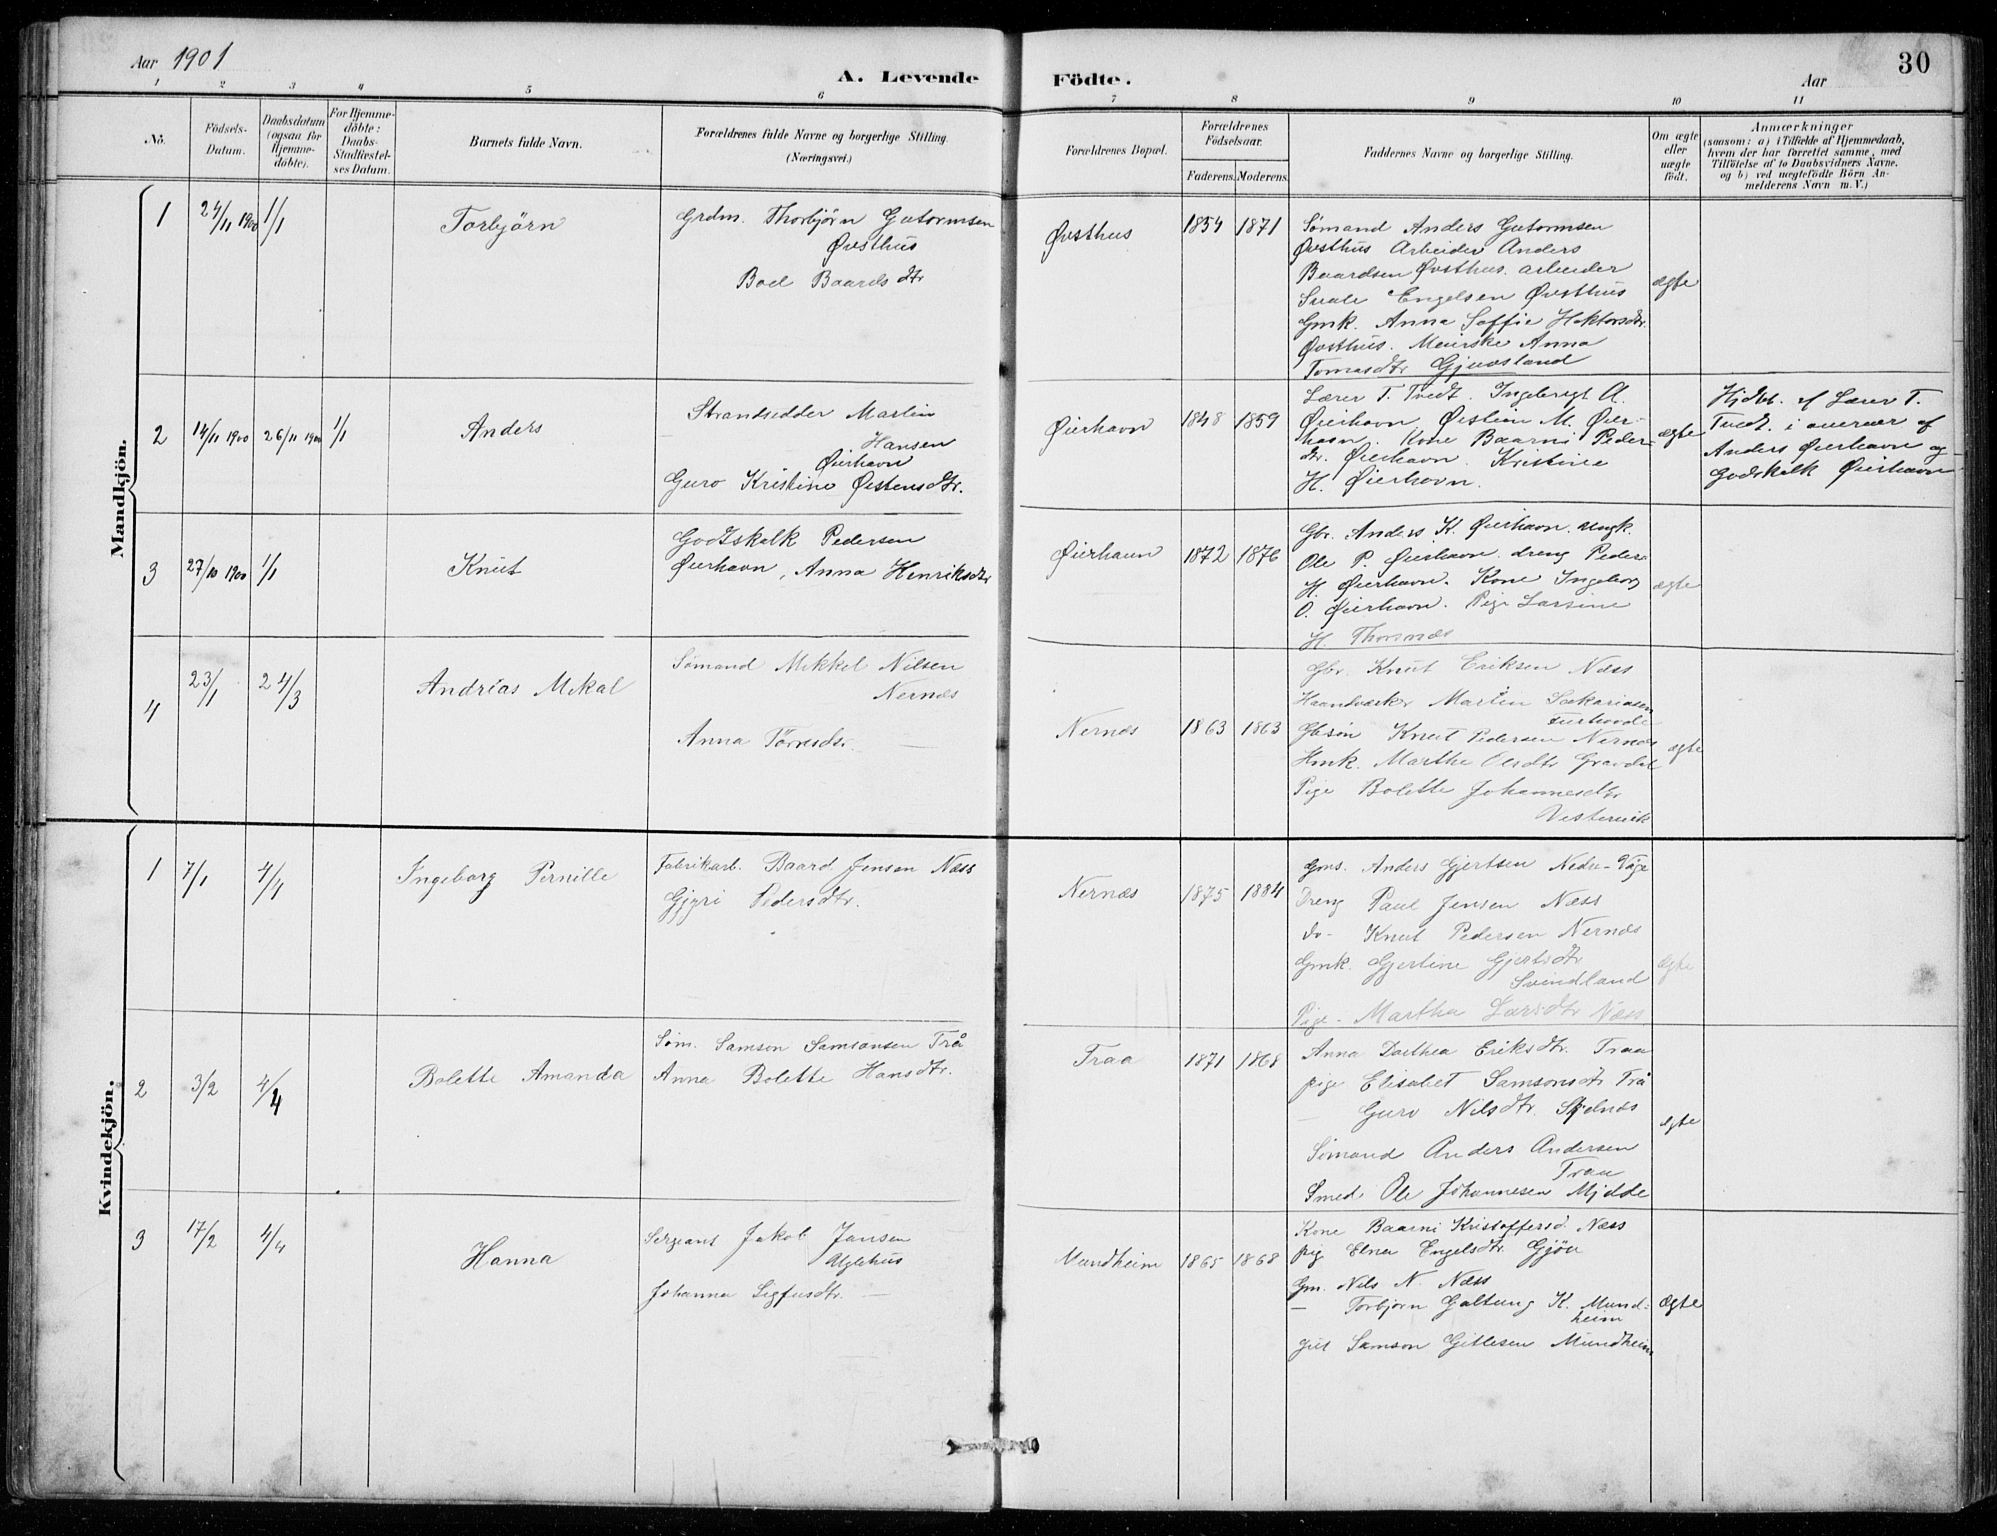 Aar 1901
A. Levende
Födte.
Aar
30
1 2 3 4 5 6 7 8 9 10 11
No.
Födsels-
Datum.
Daabsdatum
(ogsaa for
Hjemme-
döbte).
For Hjemme-
döbte:
Daabs-
Stadfæstel-
ses Datum.
Barnets fulde Navn.
Forældrenes fulde Navne og borgerlige Stilling.
(Næringsvei.)
Forældrenes Bopæl.
Forældrenes
Födselsaar.
Faderens. Moderens.
Faddernes Navne og borgerlige Stilling.
Om ægte
eller
uægte
födt.
Anmærkninger
(saasom: a) i Tilfælde af Hjemmedaab,
hvem der har forrettet samme, med
Tilföielse af to Daabsvidners Navne.
og b) ved uægtefödte Börn An-
melderens Navn m. V.)
Mandkjön.
1 24/11 1900 1/1
Torbjörn
Grdm. Thorbjørn Gutormsen
Øvsthus
Boel Baardsdtr
Øvsthus
1854 1871
Sømand Anders Gutormsen
Øvsthus Arbeider Anders
Baardsen Øvsthus. arbeider
Engelsen Øvsthus
Gmk. Anna Soffie Haktorsdtr.
Øvsthus. Meierske Anna
Tomasdtr Gjuvsland
ægte
2 14/11 1900 26/11 1900 1/1
Anders
Strandsidder Martin
Hansen
Øierhavn
Guro Kristine Østensdtr.
Øierhavn
1848 1859
Lærer T. Tvedt. Ingebrigt A.
Øierhavn, Østein M. Øier-
havn. Kone Baarni Peder-
dtr. Øierhavn. Kristine
H. Øierhavn.
ægte
Hjdbt. af Lærer T.
Tvedt. i overvær af
Anders Øierhavn og
Godskalk Øierhavn
3 27/10 1900 1/1
Knut
Godtskalk Pedersen
Øierhavn, Anna Henriksdtr
Øierhavn
1872 1876
Gbr. Anders K. Øierhavn. ungk.
Ole P. Øierhavn. dreng Peder
H. Øierhavn. Kone Ingeborg
O. Øierhavn. Pige Larsine
H. Thorsnæs
ægte
4 23/1 24/3
Andrias Mekal
Sømand Mikkel Nilsen
Nernæs
Anna Tørresdtr. —
Nernæs
1863 1863
Gbr. Knut Eriksen Næss
Haandværker Martin Sakariasen
Furhovde
Gbsøn Knut Pedersen Nernæs
Hmk. Marthe Olsdtr Gravdal
Pige Bolette Johannesdtr
Vestervik
ægte
Kvindekjön.
1 7/1 4/4
Ingeborg Pernille
Fabrikarb. Baard Jensen Næss
Gjyri Pedersdtr.
Nernæs
1875 1884
Gms. Anders Gjertsen Nedre-Våge
Dreng Paul Jensen Næss
do- Knut Pedersen Nernæs
Gmk. Gjertine Gjertsdtr
Svindland
Pige- Martha Larsdtr Næss
Ægte
2 3/2 4/4
Bolette Amanda
Søm. Samson Samsonsen Trå
Anna Bolette Hansdtr.
Traa
1871 1868
Anna Dorthea Eriksdtr. Traa
pige Elisabet Samsonsdtr Trå
— Guro Nilsdtr Skjelnæs
Sømand Anders Andersen
Traa
Smed. Ole Johannesen Mjelde
ægte
3 17/2 4/4
Hanna
Sergeant Jakob Jansen
Uglehus
Johanna Sigfusdtr. —
Mundheim
1865 1868
Kone Baarni Kristoffersd. Næss
pig Elna Engelsdtr Gjøn
Gm. Nils N. Næss
— Torbjørn Galtung K. Mund-
heim
Samson Gitlesen Mundheim
Ægte